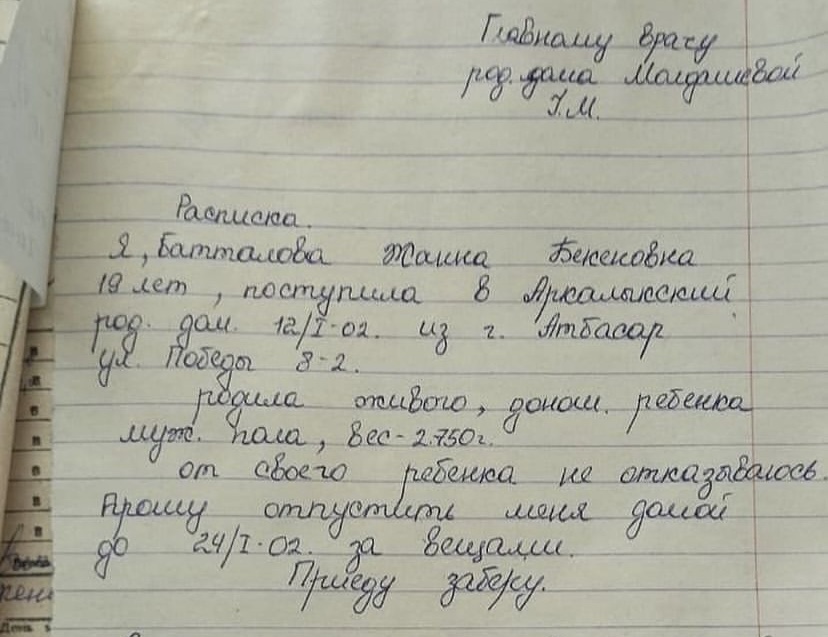 Главному врачу
род. дома Молдашевой
Г.М.
Расписка.
Я, Батталова Жанна Бекеновна
19 лет, поступила в Аркалыкский
род. дом. 12/I-02. из г. Атбасар
ул. Победы 8-2.
родила живого, донош. ребенка
муж. пола, вес - 2.750г.
от своего ребенка не отказываюсь.
Прошу отпустить меня домой
до 24/I-02. за вещами.
Приеду заберу.